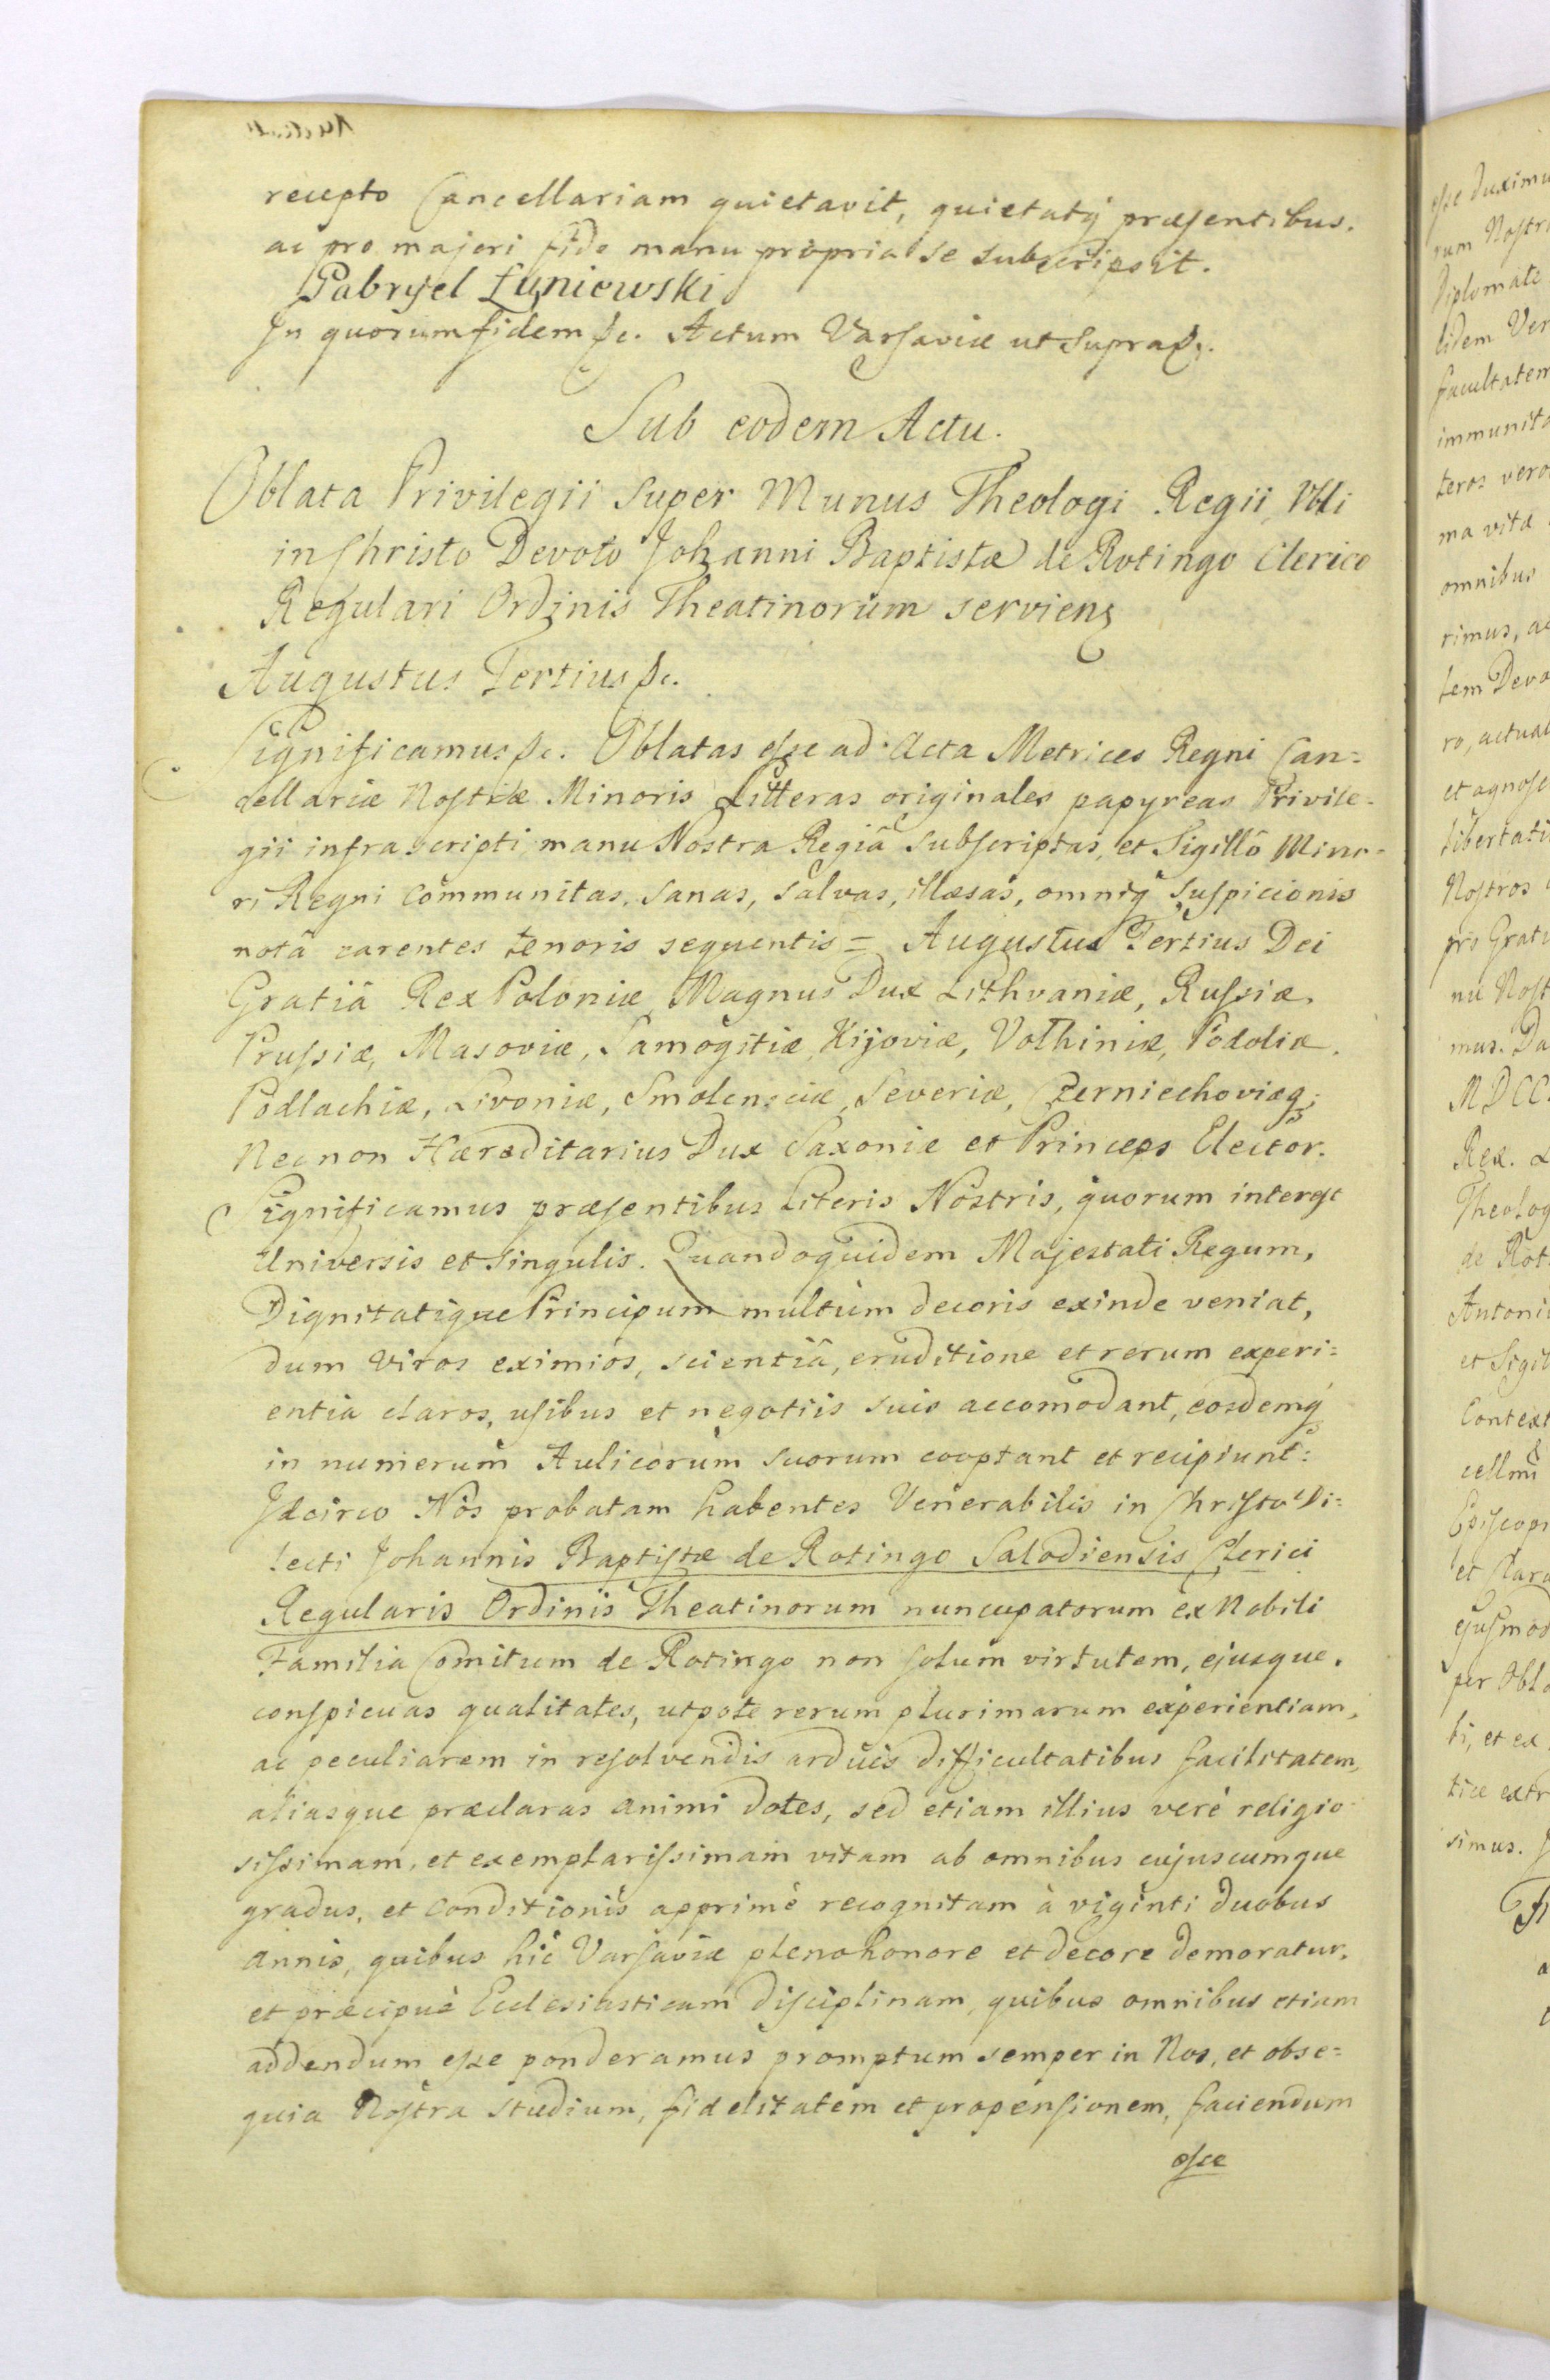 recepto Cancellariam quietavit, quietatq præsentibus.
ac pro majori fide manu propria se subscripsit.
Gabryel Łuniewski
In quorum fidem &c. Actum Varsaviæ ut supra &.
Sub eodem Actu.
Oblata Privilegii super Munus Theologi Regii Vbli
in Christo Devoto Johanni Baptistæ de Rotingo Clerico
Regulari Ordinis Theatinorum serviens
Augustus Tertius &c.
Significamus &c. Oblatas esse ad Acta Metrices Regni Can=
cellariæ Nostræ Minoris Litteras originales papyreas Privile=
gii infrascripti manu Nostra Regiâ subscriptas, et Sigillô Mino=
ri Regni communitas, sanas, salvas, illæsas, omniq suspicionis
notâ carentes tenoris sequentis = Augustus Tertius Dei
Gratiâ Rex Poloniæ, Magnus Dux Lithvaniæ, Russiæ,
Prussiæ, Masoviæ, Samogitiæ, Kijoviæ, Volhiniæ, Podoliæ,
Podlachiæ, Livoniæ, Smolensciæ, Severiæ, Czerniechoviæq;
Nec non Hæreditarius Dux Saxoniæ et Princeps Elector.
Significamus præsentibus Literis Nostris, quorum interest
Universis et singulis. Quandoquidem Majestati Regum,
Dignitatique Principum multùm decoris exinde veniat,
dum viros eximios, scientiâ, eruditione et rerum experi=
entia claros, usibus et negotiis suis accomodant, eosdemq
in numerum Aulicorum suorum cooptant et recipiunt:
Idcirco Nos probatam habentes Venerabilis in Christo Di=
lecti Johannis Baptistæ de Rotingo Salodiensis Clerici
Regularis Ordinis Theatinorum nuncupatorum ex Nobili
Familia Comitum de Rotingo non solum virtutem, ejusque,
conspicuas qualitates, utpote rerum plurimarum experientiam,
ac peculiarem in resolvendis arduis difficultatibus facilitatem,
aliasque præclaras animi dotes, sed etiam illius verè religio
sissimam, et exemplarissimam vitam ab omnibus cujuscumque
gradus, et conditionis apprimè recognitam à viginti duobus
annis, quibus hic Varsaviæ pleno honore et decore demoratur,
et præcipuè Ecclesiasticam disciplinam, quibus omnibus etiam
addendum esse ponderamus promptum semper in Nos, et obse=
quia Nostra studium, fidelitatem et propensionem, faciendum
esse
esse duximu
rum Nostr
Diplomate
eidem Ven
facultatem
immunita
teros vero
ma vitæ
omnibus
rimus, ac
tem Devo
ro, actual
et agnosc
libertati
Nostros
pris Grati
nu Nost
mus. Da
MDCC
Rex. L
Theolog
de Rot
Antoni
et Sigil
Context
cellmi
Episcopi
et Clara
ejusmod
per Obla
ti, et ex
tice extr
simus. J